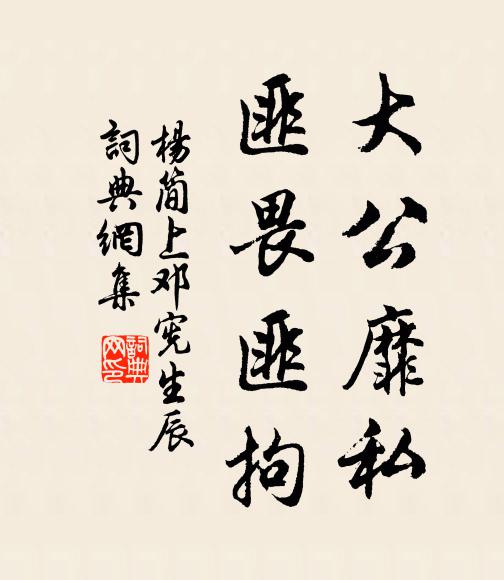 大公靡私
匪畏匪拘
楊简上邓宪生辰
詞典網集
詞典网印